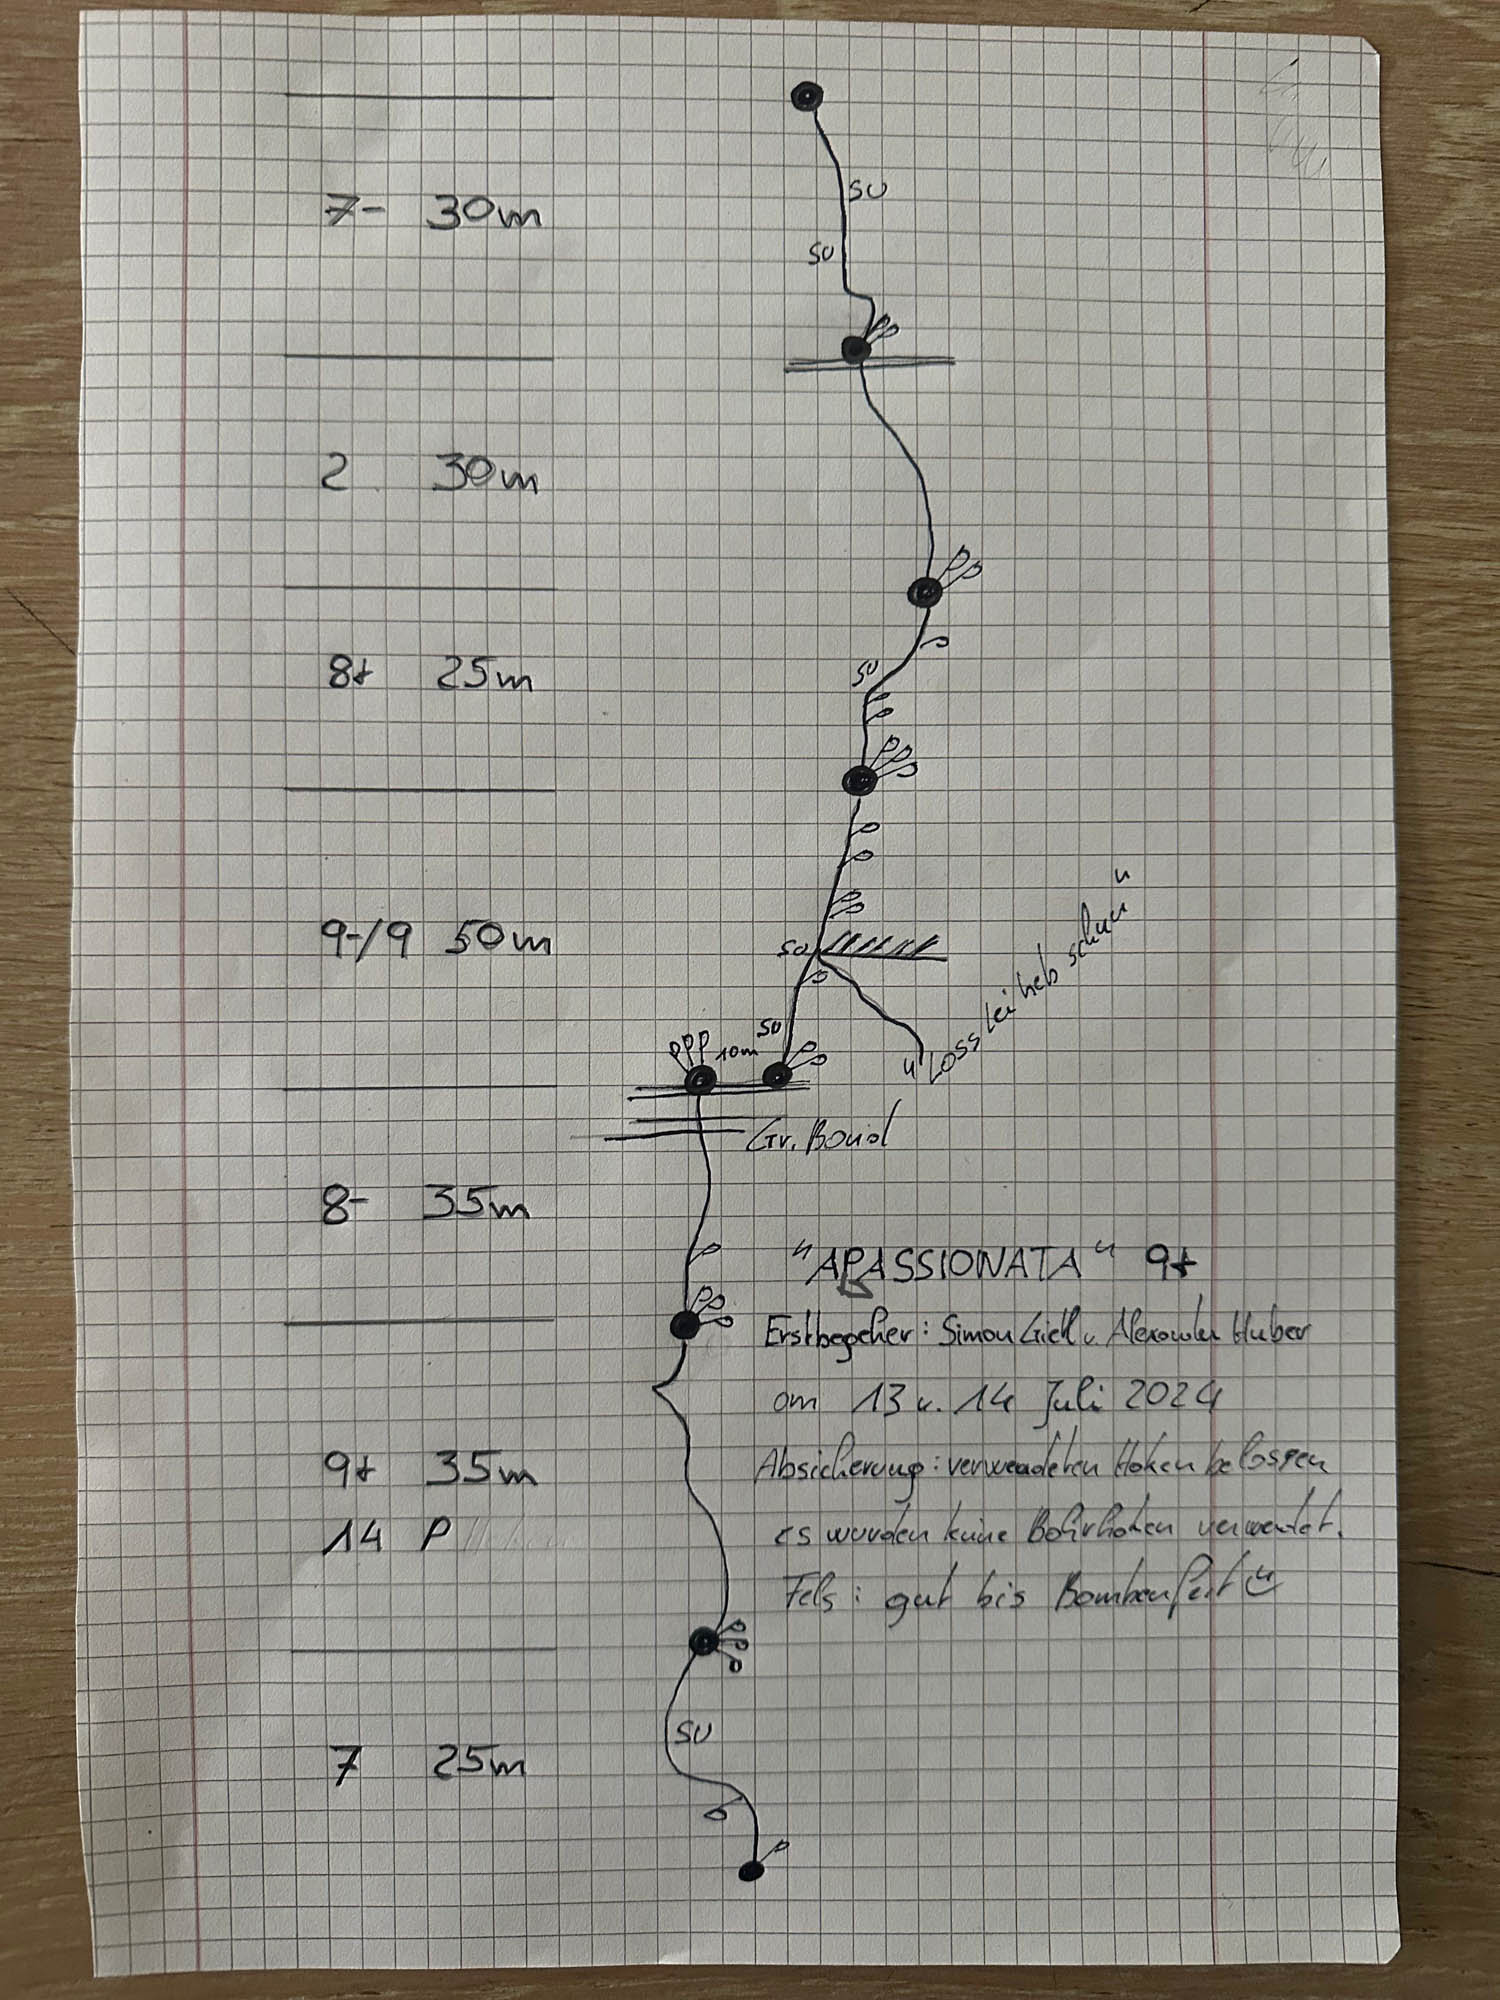 7- 30m
SU
SU
2 30m
8+ 25m
SU
9-/9 50m
SU
SU
10m
"Loss lei heb schun"
Gr. Band
8- 35m
"APASSIONATA" 9+
Erstbegeher: Simon Gietl u. Alexander Huber
am 13 u. 14 Juli 2024
9+ 35m
Absicherung: verwendeten Haken belassen
14 P
es wurden keine Bohrhaken verwendet.
Fels: gut bis Bombenfest
SU
7 25m